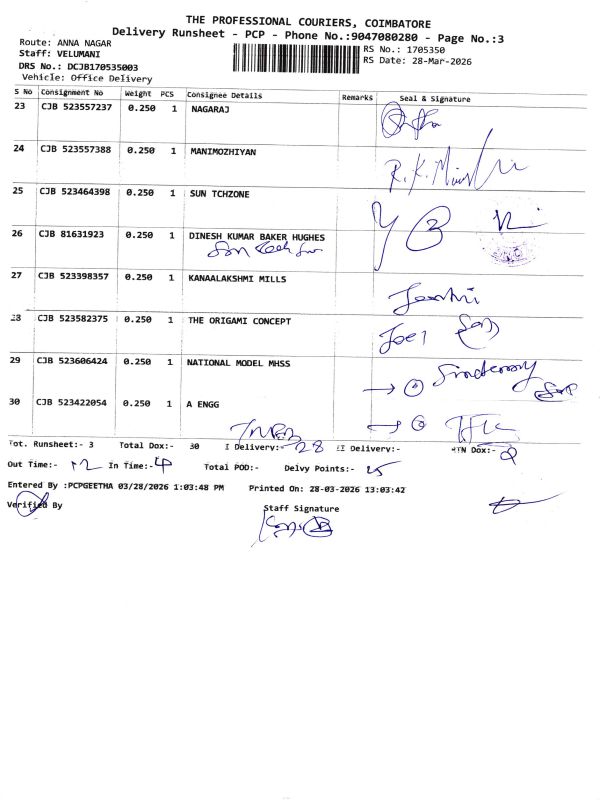 THE PROFESSIONAL COURIERS, COIMBATORE
Delivery Runsheet - PCP - Phone No.:9047080280 - Page No.:3
Route: ANNA NAGAR
RS No.: 1705350
Staff: VELUMANI
RS Date: 28-Mar-2026
DRS No.: DCJB170535003
Vehicle: Office Delivery
S No Consignment No Weight PCS Consignee Details Remarks Seal & Signature
23 CJB 523557237 0.250 1 NAGARAJ
24 CJB 523557388 0.250 1 MANIMOZHIYAN
R.K.
25 CJB 523464398 0.250 1 SUN TCHZONE
26 CJB 81631923 0.250 1 DINESH KUMAR BAKER HUGHES
27 CJB 523398357 0.250 1 KANAALAKSHMI MILLS
28 CJB 523582375 0.250 1 THE ORIGAMI CONCEPT
Joel
29 CJB 523606424 0.250 1 NATIONAL MODEL MHSS
30 CJB 523422054 0.250 1 A ENGG
Tot. Runsheet:- 3 Total Dox:- 30 I Delivery:- 28 II Delivery:- RTN Dox:- 2
Out Time:- 12 In Time:- 4 Total POD:- Delvy Points:- 25
Entered By :PCPGEETHA 03/28/2026 1:03:48 PM Printed On: 28-03-2026 13:03:42
Verified By Staff Signature